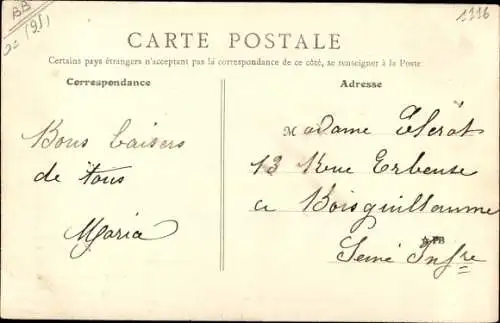 BB
(21)
1116
CARTE POSTALE
Certains pays étrangers n'acceptant pas la correspondance de ce côté, se renseigner à la Poste
Correspondance
Adresse
Bons baisers
de tous
Maria
Madame Clérot
13 Rue Erbeuse
a Boisguillaume
Seine Infre
PB